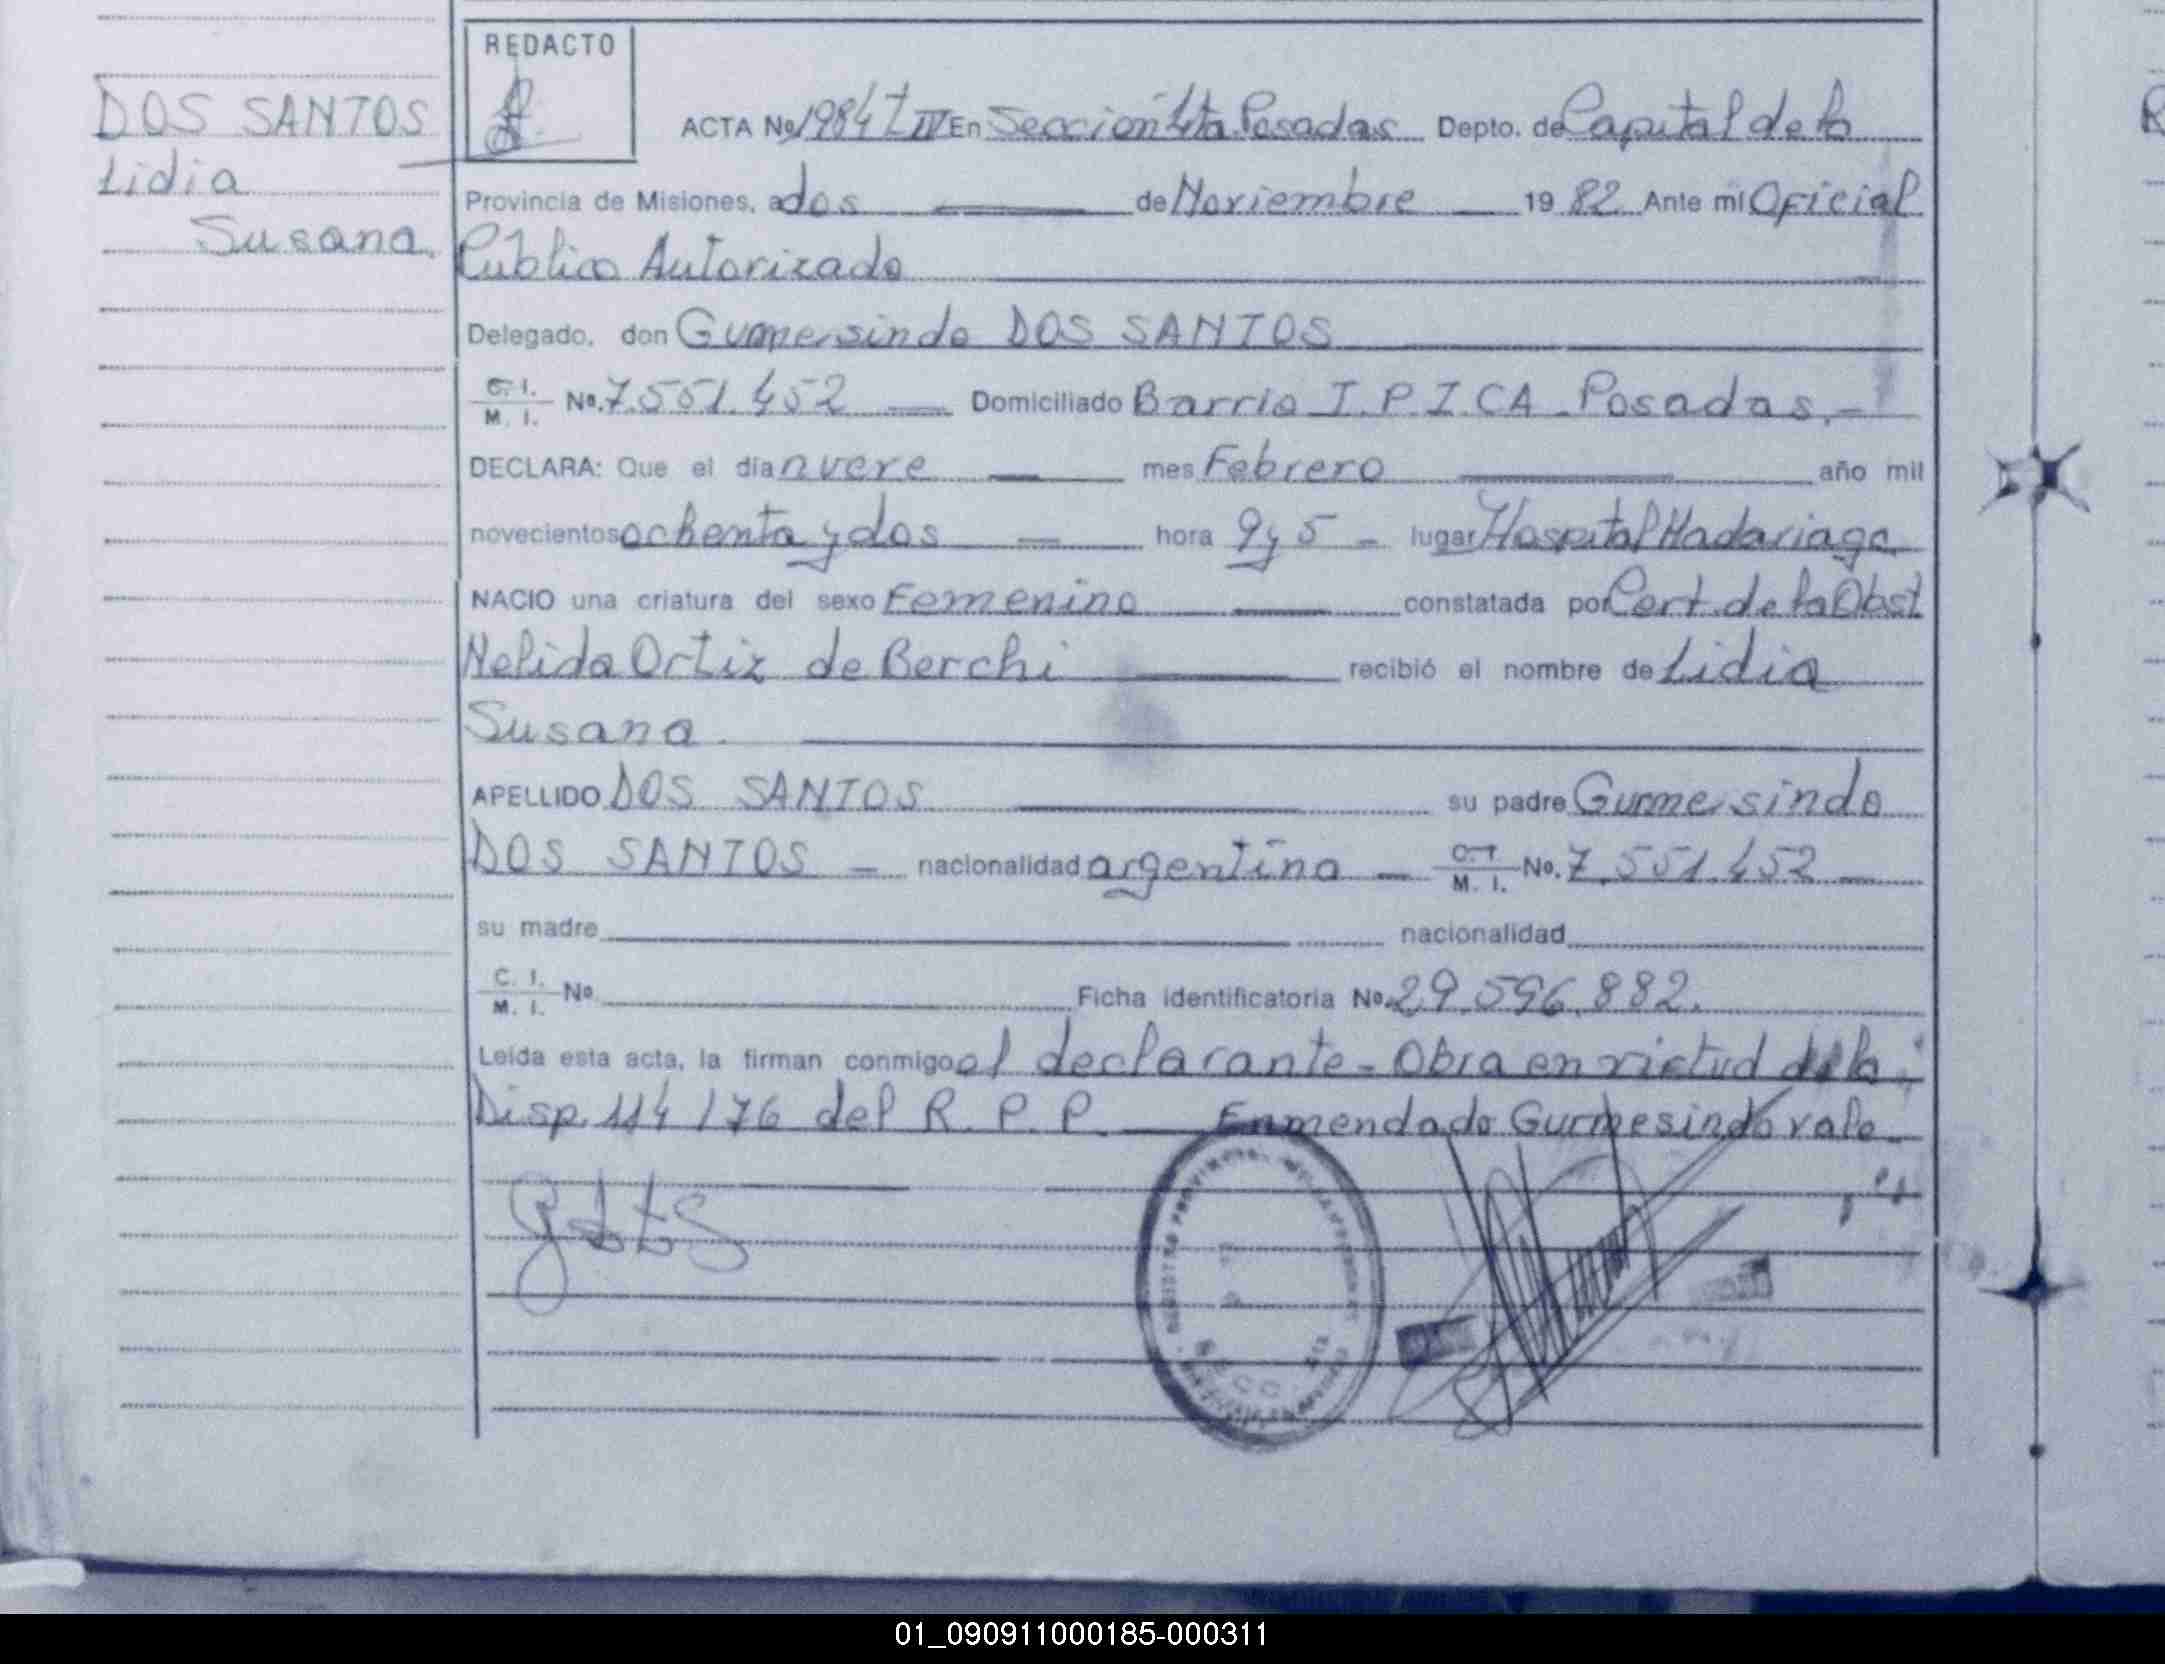 REDACTO
DOS SANTOS
Lidia
Susana.
ACTA Nº 1984 T IV En Sección 4ta Posadas Depto. de Capital de la
Provincia de Misiones, a dos de Noviembre 1982 Ante mi Oficial
Público Autorizado
Delegado, don Gumersindo DOS SANTOS
C. I. M. I. Nº. 7.551.452 Domiciliado Barrio I.P.I.CA. Posadas.-
DECLARA: Que el día nueve mes Febrero año mil
novecientos ochenta y dos hora 9 y 5 lugar Hospital Madariaga
NACIO una criatura del sexo Femenino constatada por Cert. de la Obst
Nelida Ortiz de Berchi recibió el nombre de Lidia
Susana.
APELLIDO DOS SANTOS su padre Gumersindo
DOS SANTOS nacionalidad argentino C. I. M. I. Nº. 7.551.452
su madre nacionalidad
C. I. M. I. Nº Ficha identificatoria Nº. 29.596.882.
Leída esta acta, la firman conmigo el declarante - Obra en virtud de la
Disp. 114/76 del R. P. P. Enmendado Gumersindo vale
SECC. 4ta
01_090911000185-000311